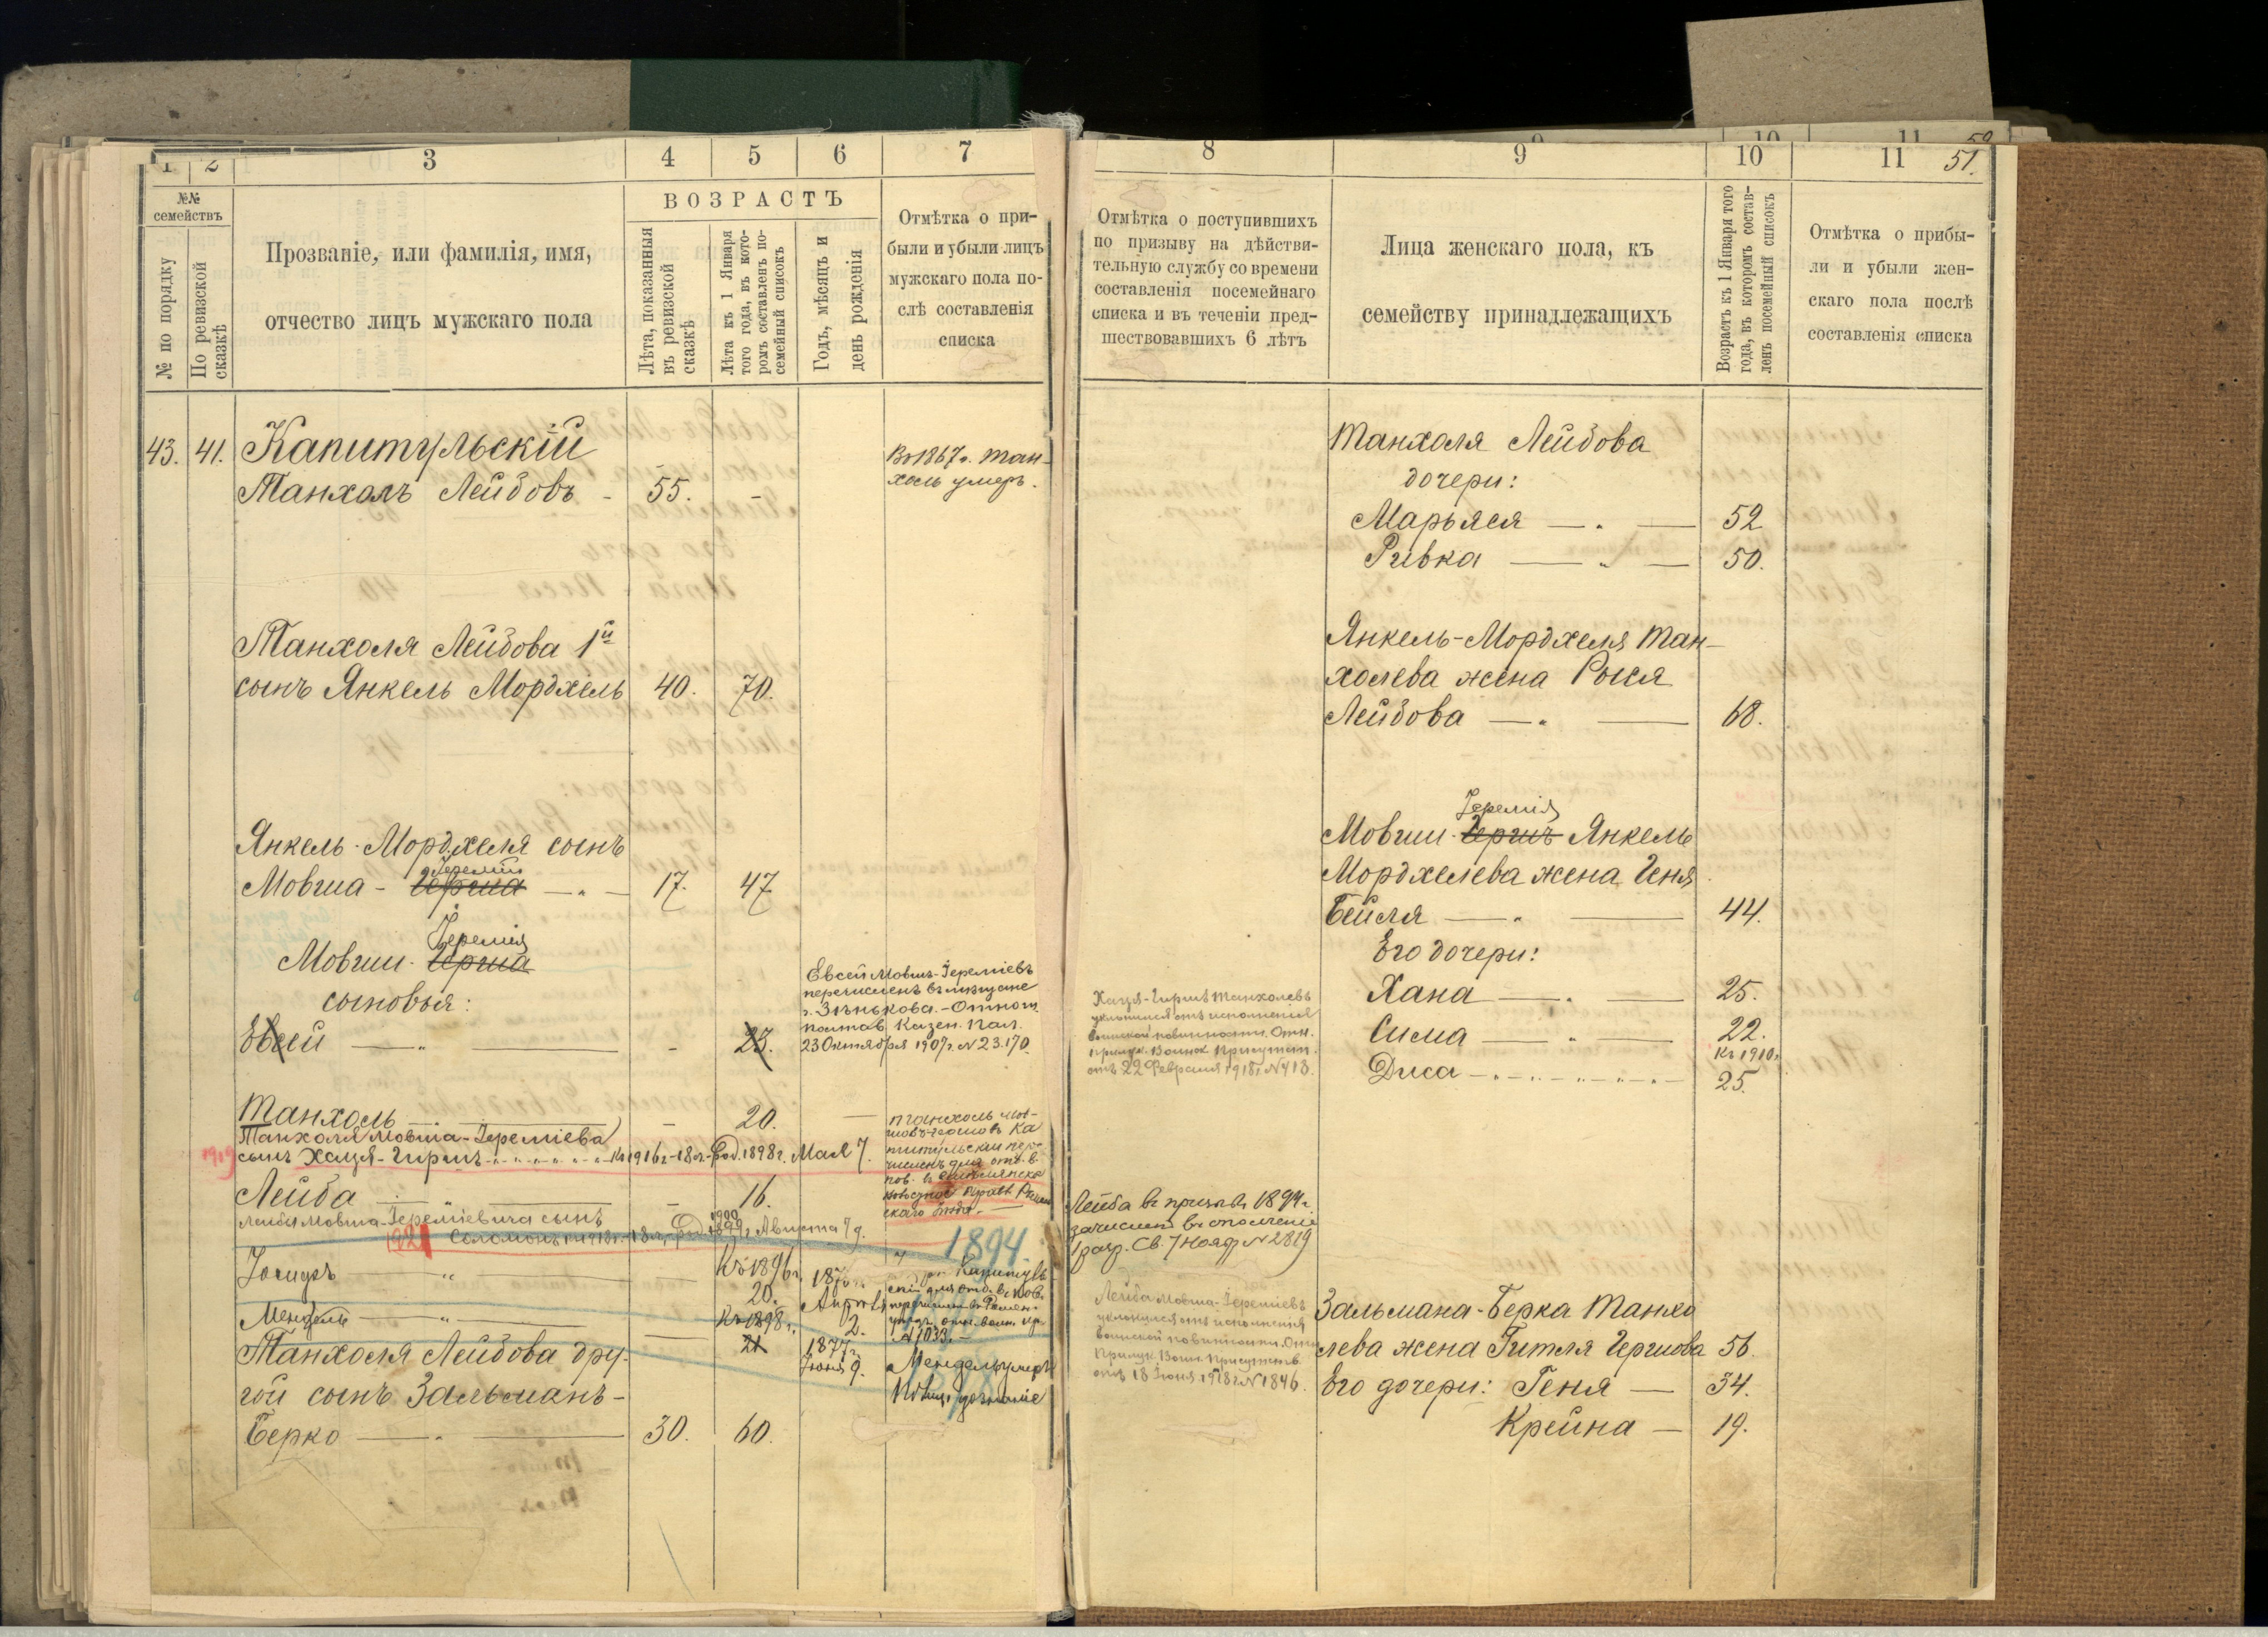 1 2 3 4 5 6 7
№№
семействъ
№ по порядку
По ревизской
сказкѣ
Прозваніе, или фамилія, имя,
отчество лицъ мужскаго пола
ВОЗРАСТЪ
Лѣта, показанныя
въ ревизской
сказкѣ
Лѣта къ 1 Января
того года, въ кото-
ромъ составленъ по-
семейный списокъ
Годъ, мѣсяцъ и
день рожденія
Отмѣтка о при-
были и убыли лицъ
мужскаго пола по-
слѣ составленія
списка
43. 41. Капитульскій
Танхолъ Лейбовъ - 55. -
Въ 1867 г. Тан-
холь умеръ.
Танхоля Лейбова 1й
сынъ Янкель Мордхель 40. 70.
Янкель-Мордхеля сынъ
Іеремія
Мовша - Герша 17. 47
Іеремія
Мовши - Герша
сыновья:
Евсей - 23.
Евсей Мовша-Іереміевъ
перечисленъ въ мѣщане
г. Зѣнькова. - Отнош.
Полтав. Казен. Пал.
23 Октября 1907 г. N 23.170.
Танхоль - 20.
Танхоля Мовша-Іереміева
1919 сынъ Хаця-Гиршъ Къ 1916 г. - 18 л. - Род. 1898 г. Мая 7.
Лейба - 16.
Лейбы Мовша-Іереміевича сынъ
1900
921 Соломонъ къ 1918 г. - 18 л. - род. 1899 г. Августа 7 д.
1894.
Къ 1896 г.
20.
Апрѣля
2.
Мендель Къ 1898 г.
21
1877 г.
Іюня 9.
Мендель умеръ
Танхоля Лейбова дру-
гой сынъ Зальманъ-
Берко 30. 60.
8 9 10 11 51.
Отмѣтка о поступившихъ
по призыву на дѣйстви-
тельную службу со времени
составленія посемейнаго
списка и въ теченіи пред-
шествовавшихъ 6 лѣтъ
Лица женскаго пола, къ
семейству принадлежащихъ
Возрастъ къ 1 Января того
года, въ которомъ состав-
ленъ посемейный списокъ
Отмѣтка о прибы-
ли и убыли жен-
скаго пола послѣ
составленія списка
Танхоля Лейбова
дочери:
Марьяся 52
Ривка 50.
Янкель-Мордхеля Тан-
холева жена Рыся
Лейбова 68.
Іеремія
Мовши-Гершъ Янкель
Мордхелева жена Геня
Бейля 44.
Его дочери:
Хана 25.
Сима 22.
Къ 1910 г.
Диса 25.
Хаця-Гиршъ Танхолевъ
уклонился отъ исполненія
воинской повинности. Отн.
Прилук. Воинск. Присутст.
отъ 22 Февраля 1918 г. N 413.
Лейба въ призывъ 1894 г.
зачисленъ въ ополченіе
1 разр. Св. 7 Нояб. N 2819
Лейба Мовша-Іереміевъ
уклонился отъ исполненія
воинской повинности. Отн.
Прилук. Воин. Присутств.
отъ 18 Іюня 1918 г. N 1846.
Зальмана-Берка Танхо
лева жена Гитля Гершова 56.
Его дочери: Геня 34.
Крейна 19.